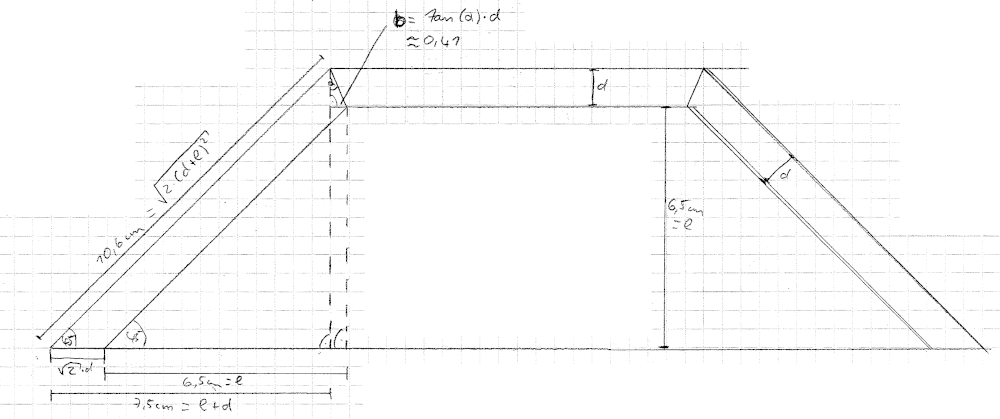 b = tan(α)·d
≈ 0,41
α
d
10,6cm = √2·(d+e)²
d
6,5cm
= e
45°
45°
√2·d
6,5cm = e
7,5cm = e+d